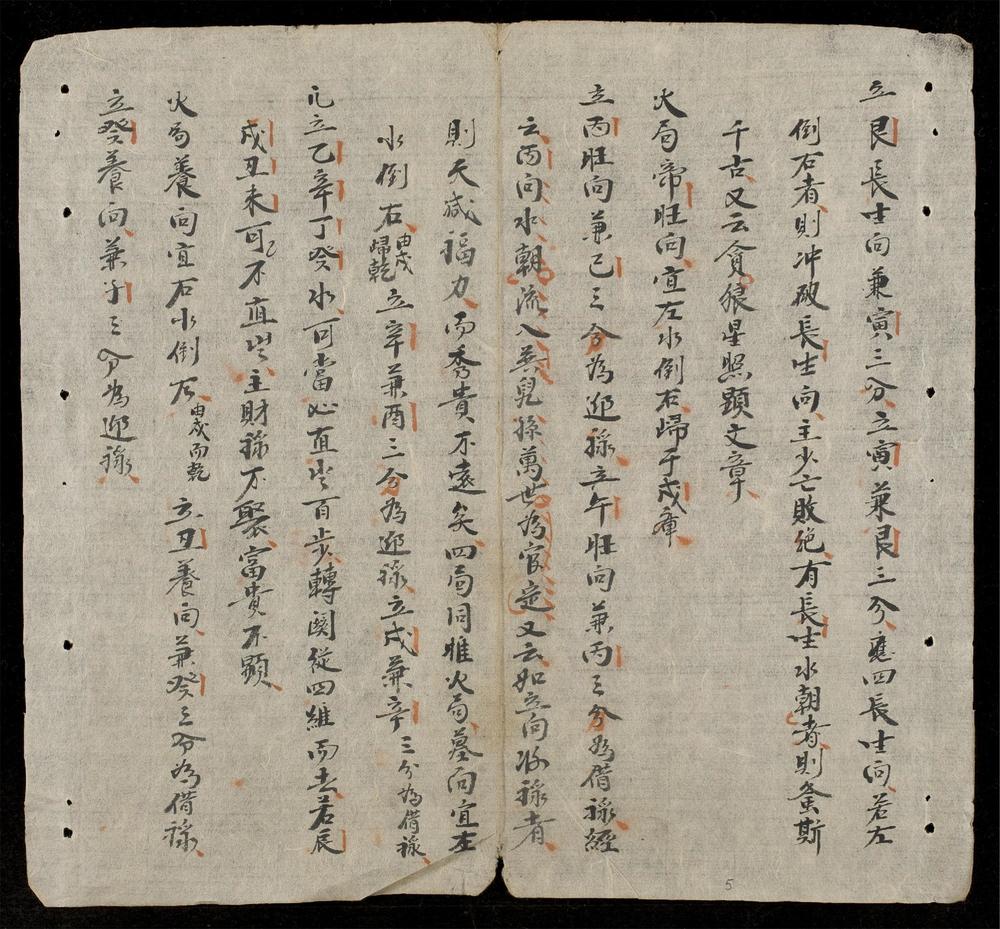 立艮長生向兼寅三分立寅兼艮三分應四長生向若左
倒右者則冲破長生向主少亡敗絶有長生水朝者則螽斯
千古又云貪狼星照顕文章
火局帝旺向宜左水倒右歸于戌庫
立丙旺向兼巳三分為迎祿立午旺向兼丙三分為借祿經
云丙向水朝流入巽兒孫萬世為官定又云如立向收祿者
則天減福力而秀貴不遠矣四局同惟火局墓向宜左
水倒右由戌歸乾立辛兼酉三分為迎祿立戌兼辛三分為借祿
凡立乙辛丁癸水可當必直出百步轉関從四維而去若辰
戌丑未可不直出主財祿不聚富貴不顕
火局養向宜右水倒左由戌而乾立丑養向兼癸三分為借祿
立癸養向兼子三分為迎祿
5